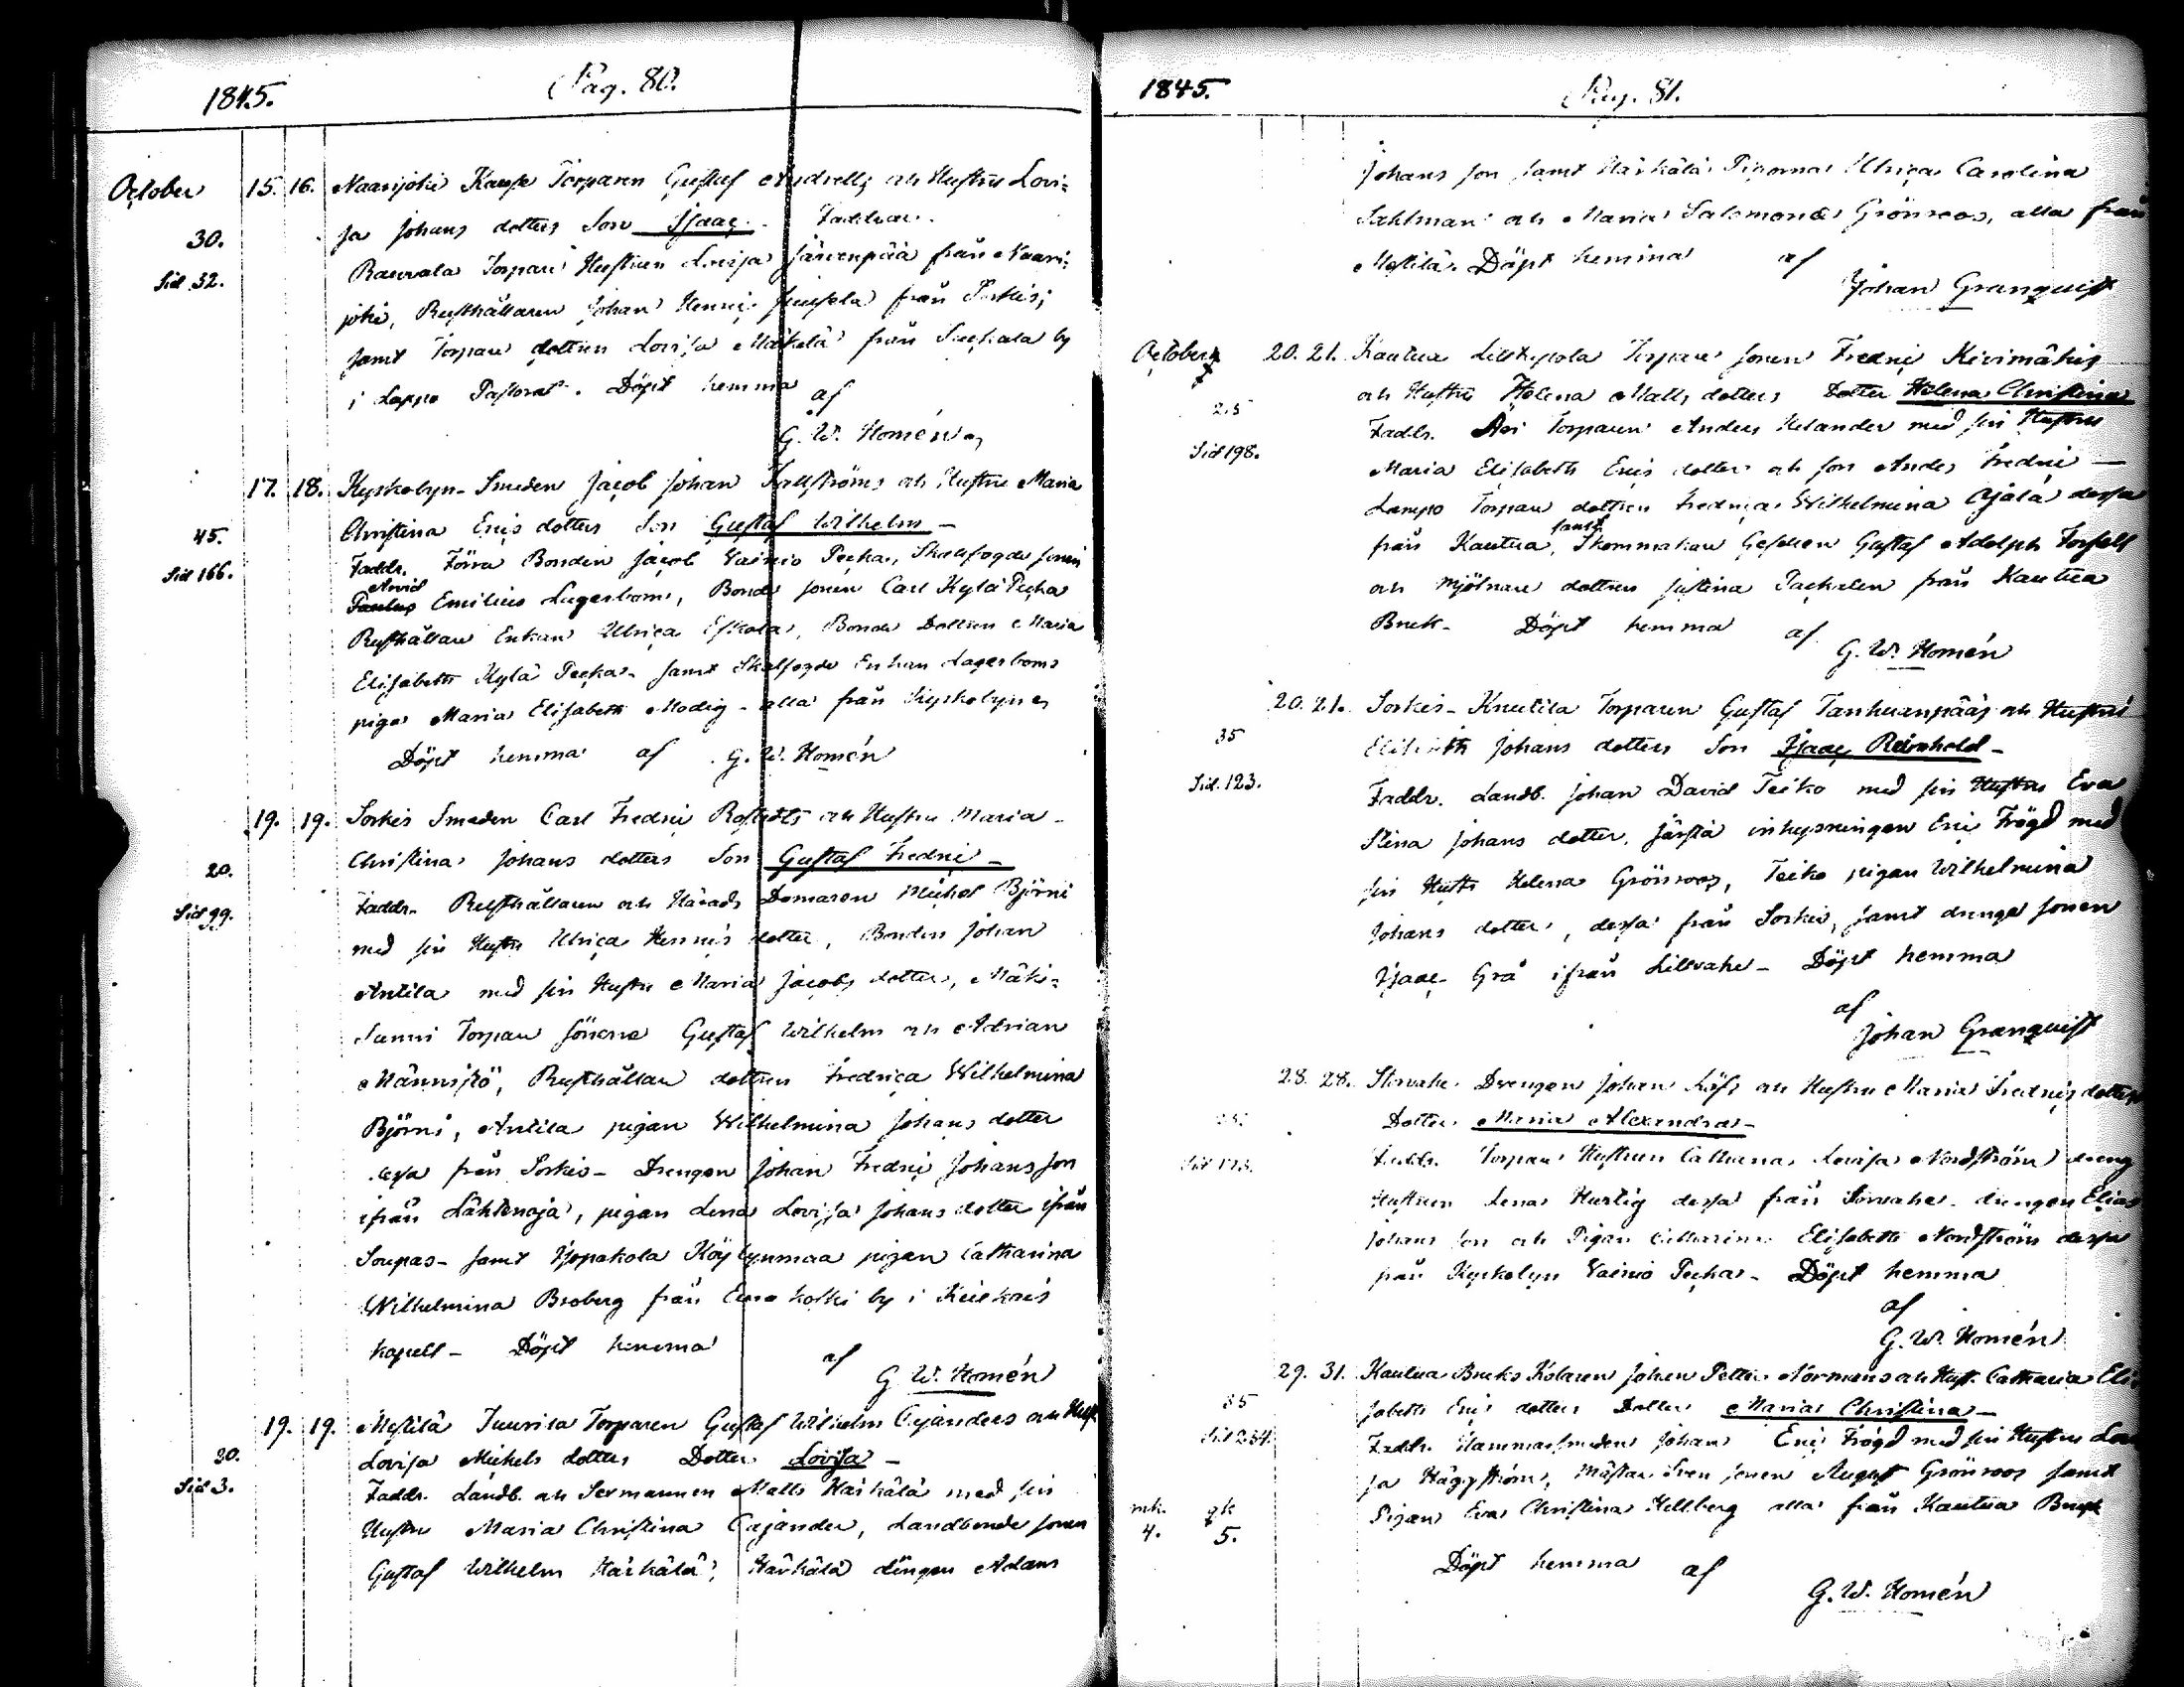 1845. Pag. 80.
October 15. 16. Naarijoki Kaupe Torparen Gustaf Andrells och Hustru Lovi=
30. sa Johans dotters Son Isaac. Faddrar.
Sid 32. Rauvola Torpare Hustrun Lovisa Järvenpää från Naari=
joki, Rusthållaren Johan Henric Juusela från Sorkis;
samt Torpare dottren Lovisa Mäkelä från Suckala by
i Lappo Pastorat. Döpt hemma af
G. W. Homén
17. 18. Kyrkobyn Smeden Jacob Johan Kallströms och Hustru Maria
45. Christina Erics dotters Son Gustaf Wilhelm –
Sid 166. Faddr. Förra Bonden Jacob Vainio Pecka, Skallfogde sonen
Arvid
Paulus Emilius Lagerbom, Bonde sonen Carl Kylä Pecka
Rusthållare Enkan Ulrica Eskola, Bonde Dottren Maria
Elisabeth Kylä Pecka – samt Skallfogde Enkan Lagerboms
piga Maria Elisabeth Modig – alla från Kyrkobyn
Döpt hemma af G. W. Homén
19. 19. Sorkis Smeden Carl Fredric Rostedts och Hustru Maria
20. Christina Johans dotters Son Gustaf Fredric –
Sid 99. Faddr. Rusthållaren och Härads Domaren Michel Björni
med sin Hustru Ulrica Henrics dotter, Bonden Johan
Antila med sin Hustru Maria Jacobs dotter, Mäki=
Sunni Torpare Sönerne Gustaf Wilhelm och Adrian
Männistö, Rusthållare dottren Fredrica Wilhelmina
Björni, Antila pigan Wilhelmina Johans dotter
dessa från Sorkis – Drengen Johan Fredric Johans son
ifrån Lähtenoja, pigan Lena Lovisa Johans dotter ifrån
Soupas – samt Yppakola Köylynmaa pigan Catharina
Wilhelmina Broberg från Eurakoski by i Kiukais
kapell – Döpt hemma af
G. W. Homén
19. 19. Mestilä Juurila Torparen Gustaf Wilhelm Cajanders och Hust.
20. Lovisa Michels dotters Dotter Lovisa –
Sid 3. Faddr. Landb. och Sexmannen Matts Härkälä med sin
Hustru Maria Christina Cajander, Landbonde sonen
Gustaf Wilhelm Härkälä, Härkälä drängen Adam
1845. Pag. 81.
Johans son samt Härkälä Pigorna Ulrica Carolina
Sahlman och Maria Salomonda Grönroos, alla från
Mestilä. Döpt hemma af
Johan Granquist
October 20. 21. Kauttua Lillkipola Torpare sonen Fredric Kivimäkis
25 och Hustru Helena Matts dotters Dotter Helena Christina
Sid 198. Faddr. Äri Torparen Anders Helander med sin Hustru
Maria Elisabeth Erics dotter och son Anders Fredric –
Lampo Torpare dottren Fredrica Wilhelmina Ojala dessa
från Kauttua, samt Skommakare Gesellen Gustaf Adolph Forsell
och Mjölnare dottren Justina Tackalen från Kauttua
Bruk – Döpt hemma af
G. W. Homén
20. 21. Sorkis – Knuutila Torparen Gustaf Tanhuanpääs och Hustru
35 Elisabeth Johans dotters Son Isaac Reinhold –
Sid. 123. Faddr. Landb. Johan David Teiko med sin Hustru Eva
Stina Johans dotter, Järstä inhysningen Eric Frögd med
sin Hustr Helena Grönroos, Teiko pigan Wilhelmina
Johans dotter, dessa från Sorkis, samt drenga sonen
Isaac Grå ifrån Lillvahe – Döpt hemma
af
Johan Granquist
28. 28. Storvahe Drengen Johan Löfs och Hustru Maria Fredrics dotters
Dotter Maria Alexandra –
Faddr. Torpare Hustrun Catharina Lovisa Nordström dreng
Hustrun Lena Hurtig dessa från Storvahe – drengen Elias
Johans son och Pigan Catharina Elisabeth Nordström dessa
från Kyrkobyn Vainio Pecka – Döpt hemma
af
G. W. Homén
29. 31. Kauttua Bruks Kolaren Johan Petter Normans och Hust. Catharina Eli
35 sabeth Erics dotters Dotter Maria Christina –
Sid 254. Faddr. Hammarsmeden Johan Eric Frögd med sin Hustru Lovi
sa Häggström, Mästare Sven sonen August Grönroos samt
mk. gk Pigan Eva Christina Hellberg alla från Kauttua Bruk
4. 5.
Döpt hemma af
G. W. Homén